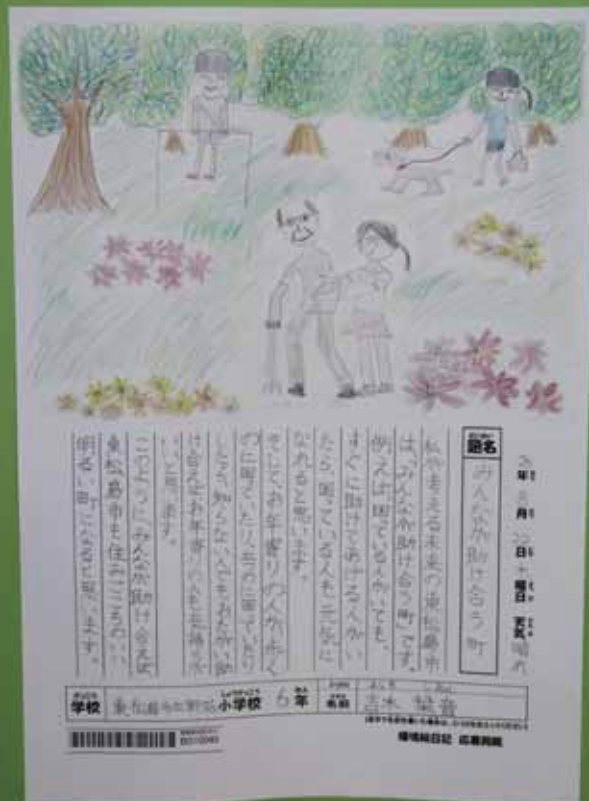 年 月 日 曜日 天気 晴れ
題名 みんなが助け合う町
私が考える未来の東松島市
は、「みんなが助け合う町」です。
例えば、困っている人がいても、
すぐに助けてあげる人がい
たら、困っている人も元気に
なれると思います。
そしてお年寄りの人が歩く
のに困っていたり、
しても知らない人でもおたがい助
け合えばお年寄りの人も気持ちが
いいと思います。
このようにみんなが助け合えば
東松島市も住みごこちのいい
明るい町になると思います。
学校 東松島市立 小学校 6年 名前
環境絵日記 応募用紙